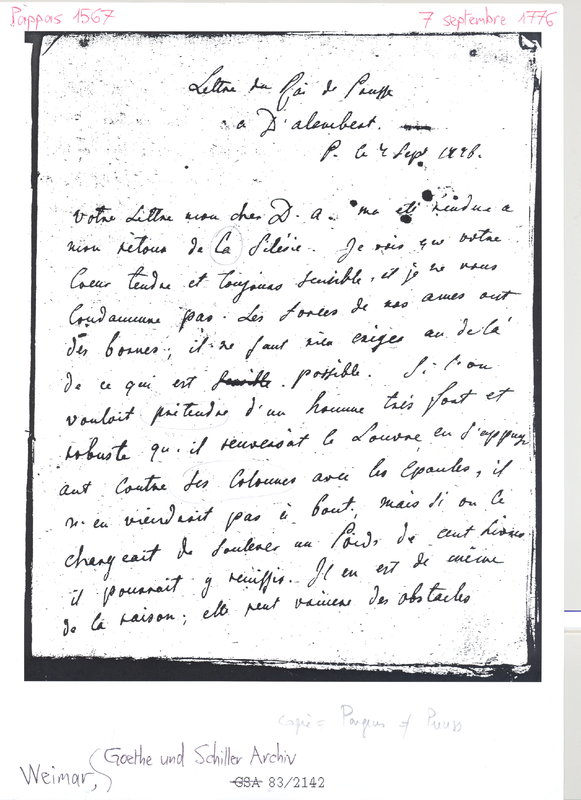 Pappas 1567
7 septembre 1776
Lettre du Roi de Prusse
a D'alembert.
P. le 7 Sept 1776.
votre Lettre mon cher D. a. ma eté rendue a
mon retour de la Silésie. Je vois que votre
Coeur tendre et toujours sensible, et je ne vous
Condamne pas. Les forces de nos ames ont
des bornes; il ne faut rien exiger au de là
de ce qui est possible. Si l'on
vouloit pretendre d'un homme très fort et
robuste qu'il renversât le Louvre en s'appuy
ant contre ses Colonnes avec les épaules, il
n'en viendroit pas à bout, mais si on le
chargeait de soulever un Poids de cent Livres
il pourrait y reussir. Il en est de même
de la raison; elle peut vaincre des obstacles
copie = Pougens ≠ Preuss
Weimar, Goethe und Schiller Archiv
GSA 83/2142